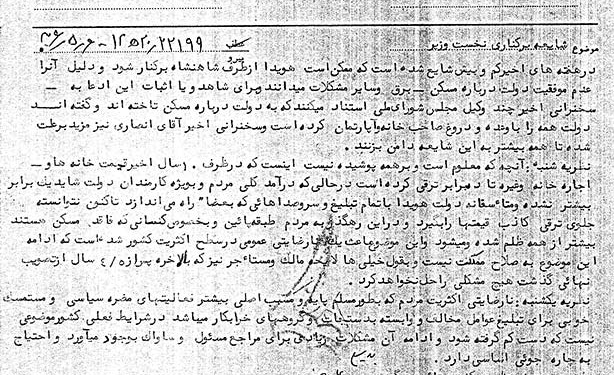 موضوع شایعه برکناری نخست وزیر
درهفته های اخیرکم و بیش شایع شده است که ممکن است هویدا ازطرف شاهنشاه برکنار شود و دلیل آنرا
عدم موفقیت دولت درباره مسکن ــ برق وسایر مشکلات میدانند وبرای شاهد و یا اثبات این ادعا به ــ
سخنرانی اخیر چند وکیل مجلس شورای ملی استناد میکنند که به دولت درباره مسکن تاخته اند و گفته انــد
دولت همه را و دروغ صاحب خانه وآپارتمان کرده است وسخنرانی اخیر آقای انصاری نیز مزید برعلت
شده تا همه بیشتر به این شایعه دامن بزنند .
نظریه شنبه : آنچه که معلوم است و برهمه پوشیده نیست اینست که درظرف ۱۰ سال اخیر قیمت خانه ها و ــ
اجاره خانه وغیره تا ده برابر ترقی کرده است درحالی که درآمد کلی مردم و بویژه کارمندان دولت شاید یک برابر
بیشتر نشده ومتأسفانه دولت هویدا باتمام تبلیغ و سروصداهائی که بعضا" راه می اندازد تاکنون نتوانسته
جلوی ترقی کاذب قیمتها رابگیرد و دراین رهگذر به مردم طبقه پائین و بخصوص کسانی که فاقد مسکن هستند
بیشتر از همه ظلم شده ومیشود واین موضوع باعث یک نارضایتی عمومی درسطح اکثریت کشور شده است که ادامه
این موضوع به صلاح مملکت نیست و بقول خیلی ها لایحه مالک ومستأجر نیز که بالاخره پس از ۴/۵ سال ازتصویب
نهائی گذشت هیچ مشکلی راحل نخواهد کرد .
نظریه یکشنبه : نارضایتی اکثریت مردم که بطور مسلم پایه و سبب اصلی بیشتر فعالیتهای مضره سیاسی و مستمسک
خوبی برای تبلیغ عوامل مخالف و وابسته بدستجات و گروههای خرابکار میباشد درشرایط فعلی کشور موضوعی
نیست که دست کم گرفته شود و ادامه آن مشکلات زیادی برای مراجع مسئول و ساواک بوجود میآورد و احتیاج
به چاره جوئی اساسی دارد .